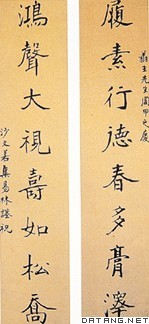 履素行德春多膏澤
先生周甲之慶
鴻聲大視壽如松喬
沙文若集易林謹祝
DATANG.NET